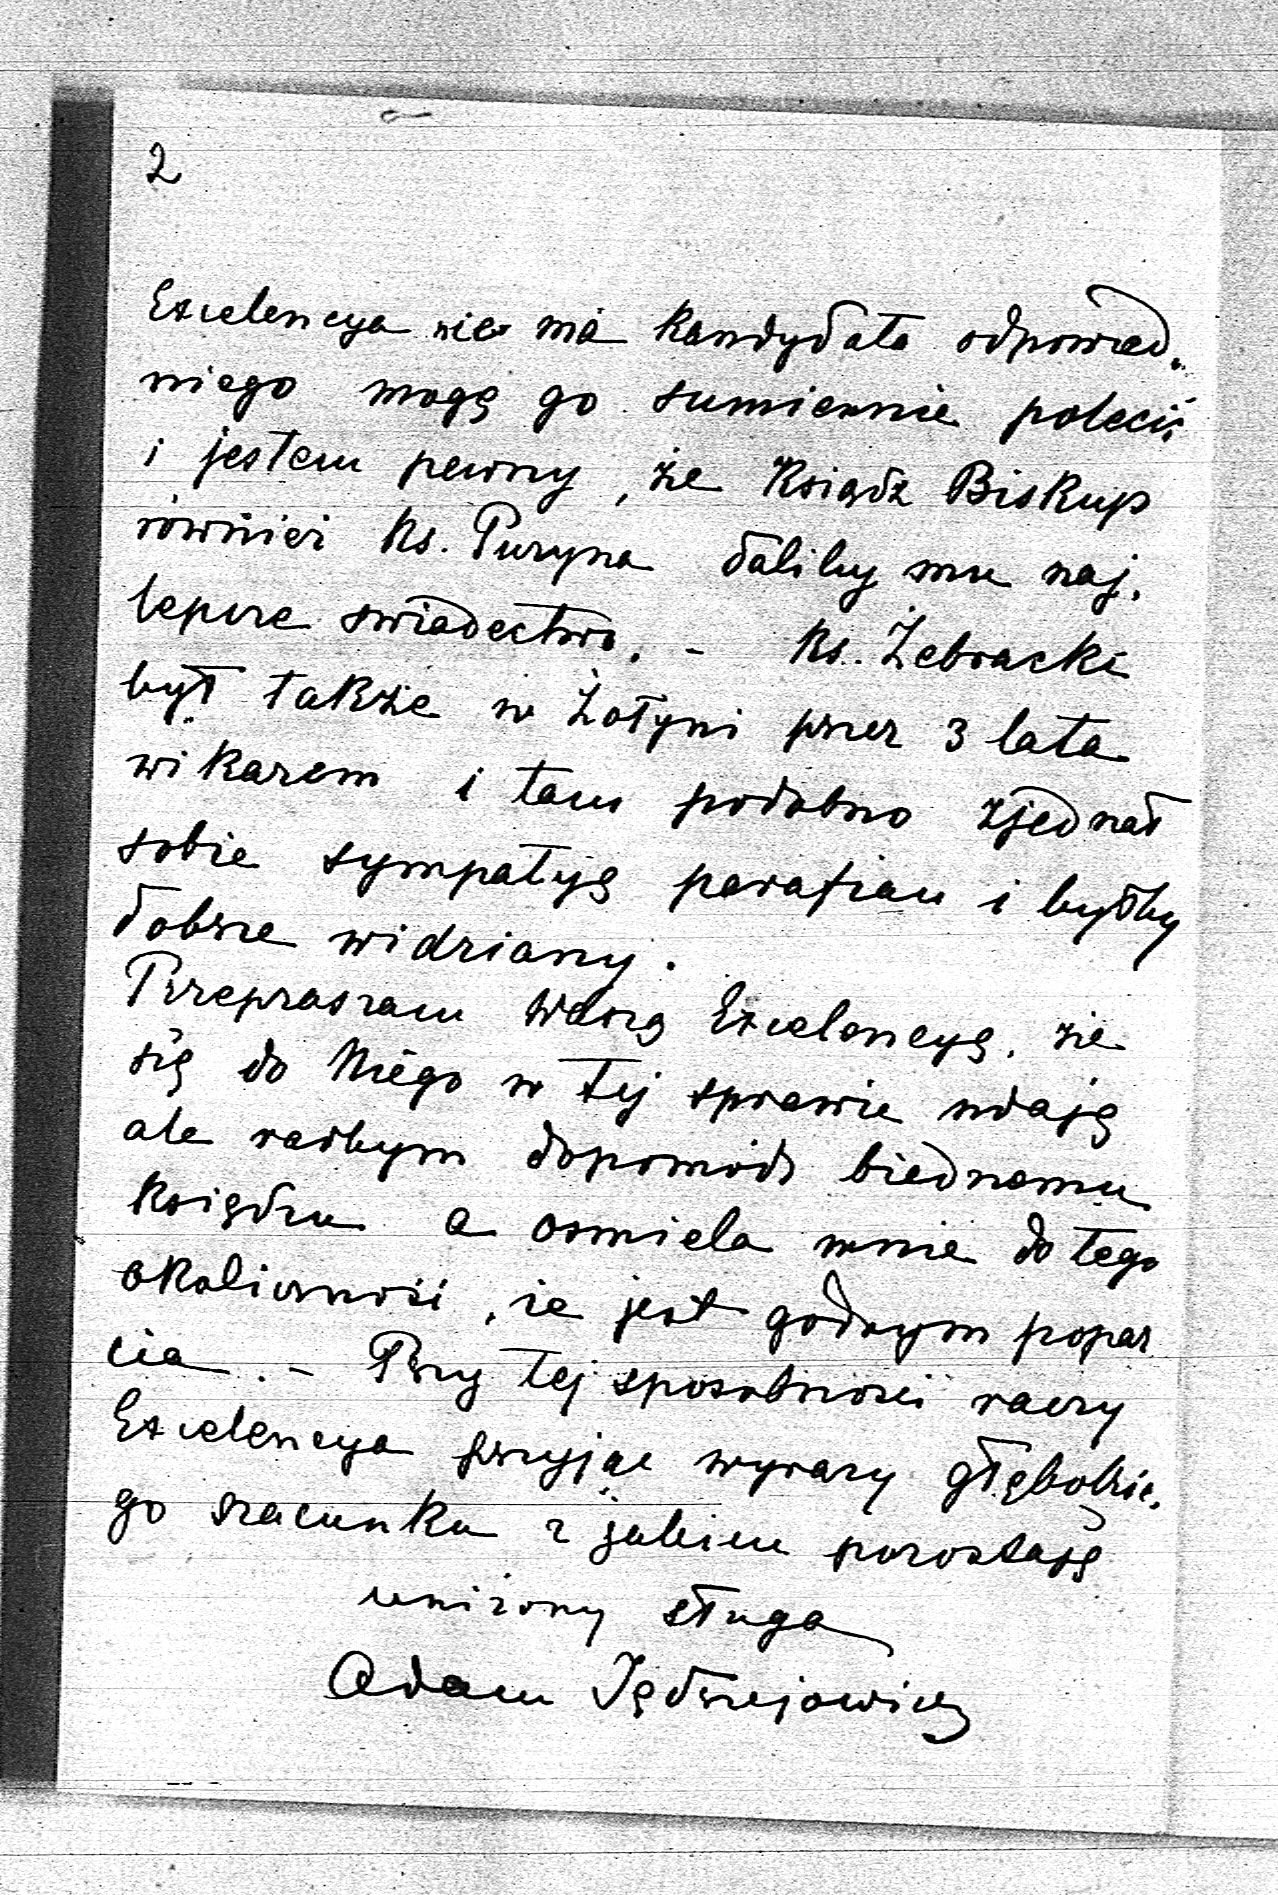 2
Excelencya nie ma kandydata odpowied-
niego mogę go sumiennie polecić
i jestem pewny, że Ksiądz Biskup
również ks. Puzyna daliby mu naj-
lepsze świadectwo. - Ks. Żebracki
był także w Żołyni przez 3 lata
wikarem i tam podobno zjednał
sobie sympatyę parafian i byłby
dobrze widziany.
Przepraszam Waszą Excelencyę, że
się do Niego w tej sprawie udaję
ale radbym dopomódz biednemu
księdzu a ośmiela mnie do tego
okoliczność, że jest godnym popar
cia. - Przy tej sposobności raczy
Excelencya przyjąć wyrazy głębokie-
go szacunku z jakiem pozostaję
uniżony sługa
Adam Jędrzejowicz